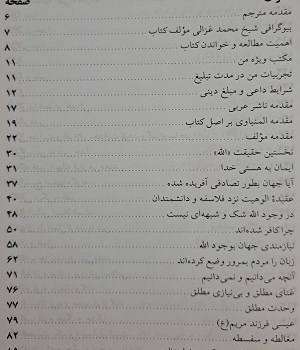 صفحه
مقدمه مترجم ۶
بیوگرافی شیخ محمد غزالی مؤلف کتاب ۷
اهمیت مطالعه و خواندن کتاب ۸
مکتب ویژه من ۱۱
تجربیات من در مدت تبلیغ ۱۱
شرایط داعی و مبلغ دینی ۱۲
مقدمه ناشر عربی ۱۷
مقدمه المنیاوی بر اصل کتاب ۱۹
مقدمه مؤلف ۲۲
نخستین حقیقت «الله» ۳۰
ایمان به هستی خدا ۳۱
آیا جهان بطور تصادفی آفریده شده ۳۷
عقیدهٔ الوهیت نزد فلاسفه و دانشمندان ۴۰
در وجود الله شک و شبهه‌ای نیست ۴۸
چرا کافر شده‌اند ۵۰
نیازمندی جهان بوجود الله ۵۸
زبان را مردم بمرور وضع کرده‌اند ۶۲
آنچه می‌دانیم و نمی‌دانیم ۷۱
غنای مطلق و بی‌نیازی مطلق ۷۶
وحدت مطلق ۷۷
عیسی فرزند مریم(ع) ۷۹
مغالطه و سفسطه ۸۲